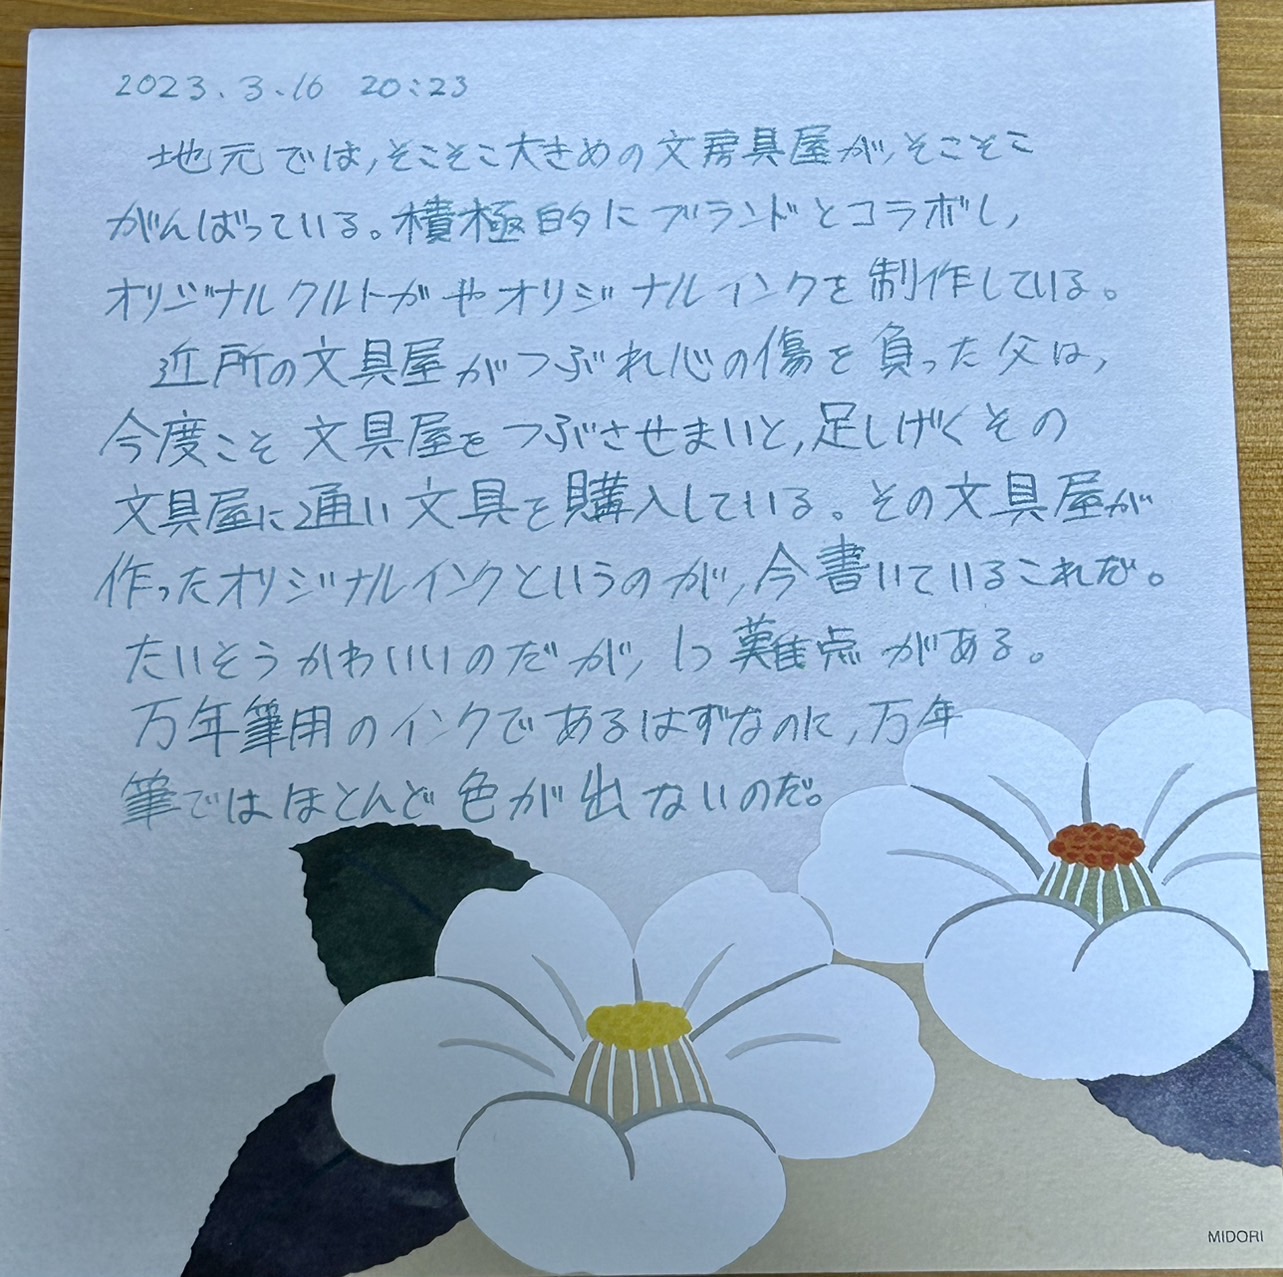 2023.3.16 20:23
地元では,そこそこ大きめの文房具屋が,そこそこ
がんばっている。積極的にブランドとコラボし,
オリジナルクルトガやオリジナルインクを制作している。
近所の文具屋がつぶれ心の傷を負った父は,
今度こそ文具屋をつぶさせまいと,足しげくその
文具屋に通い文具を購入している。その文具屋が
作ったオリジナルインクというのが,今書いているこれだ。
たいそうかわいいのだが,1つ難点がある。
万年筆用のインクであるはずなのに,万年
筆ではほとんど色が出ないのだ。
MIDORI